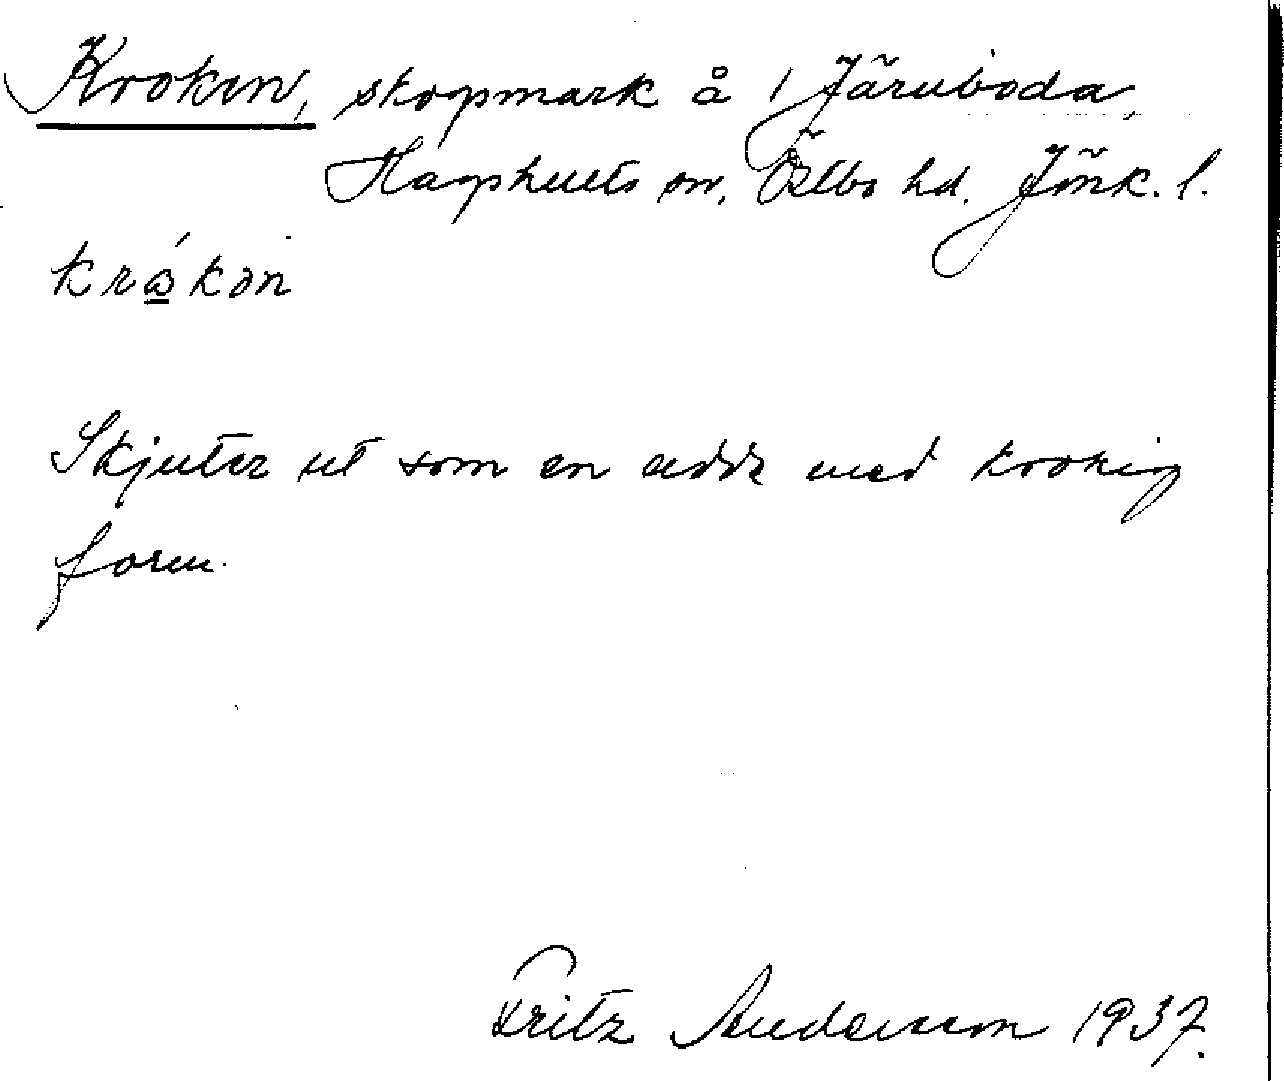 Kroken, skogsmark å 1 Järnboda,
Hagshults sn, Östbo hd. Jönk. l.
krókon
Skjuter ut som en udde med krokig
form.
Fritz Andersson 1937.